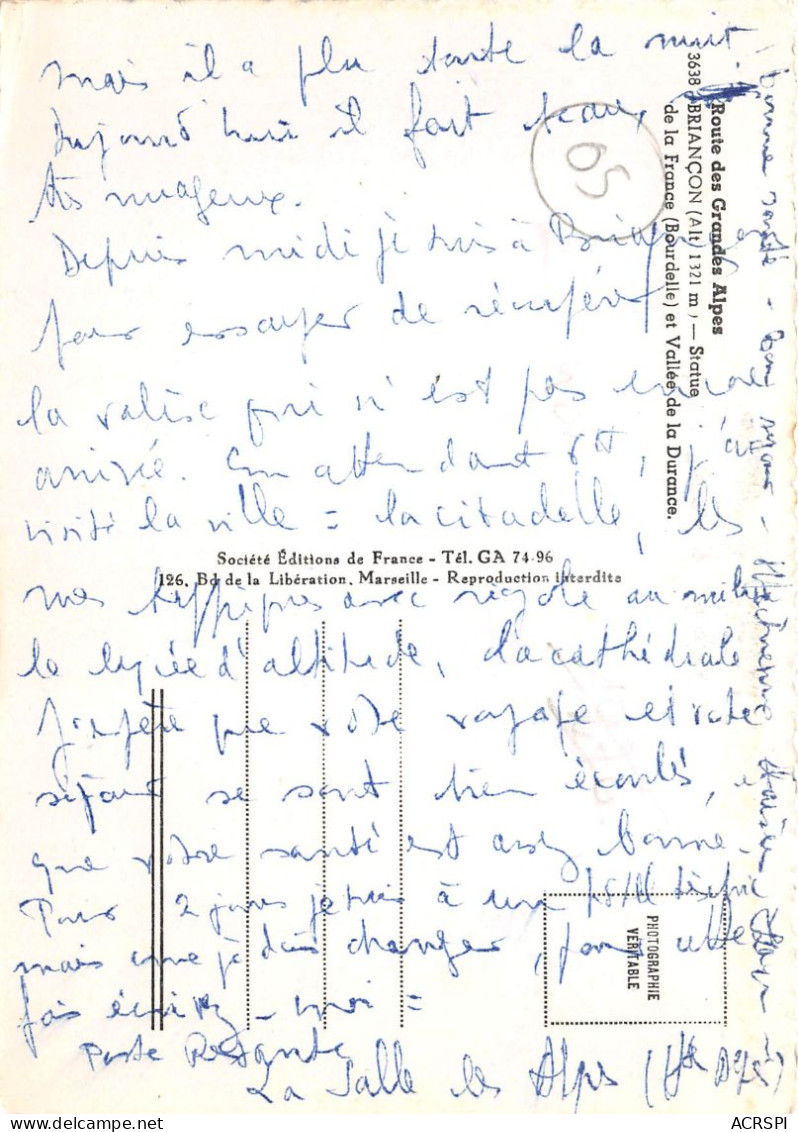 mais il a plu toute la nuit.
Aujourd'hui il fait beau,
très nuageux.
Depuis midi je suis à Briançon
pour essayer de récupérer
la valise qui n'est pas encore
arrivée. En attendant, j'ai
visité la ville = la citadelle, les
rues typiques avec rigole au milieu
le lycée d'altitude, la cathédrale
J'espère que votre voyage et votre
séjour se sont bien écoulés, et
que votre santé est assez bonne.
Pour 2 jours je suis à un
mais comme je dois changer, pour cette
fois écrivez-moi =
Poste Restante
La Salle les Alpes (Htes Alpes)
Bonne santé - Bon séjour -
65
3638 - BRIANÇON (Alt. 1321 m.) — Statue
Route des Grandes Alpes
de la France (Bourdelle) et Vallée de la Durance.
Société Éditions de France - Tél. GA 74-96
126, Bd de la Libération, Marseille - Reproduction interdite
PHOTOGRAPHIE
VÉRITABLE
ACRSPI